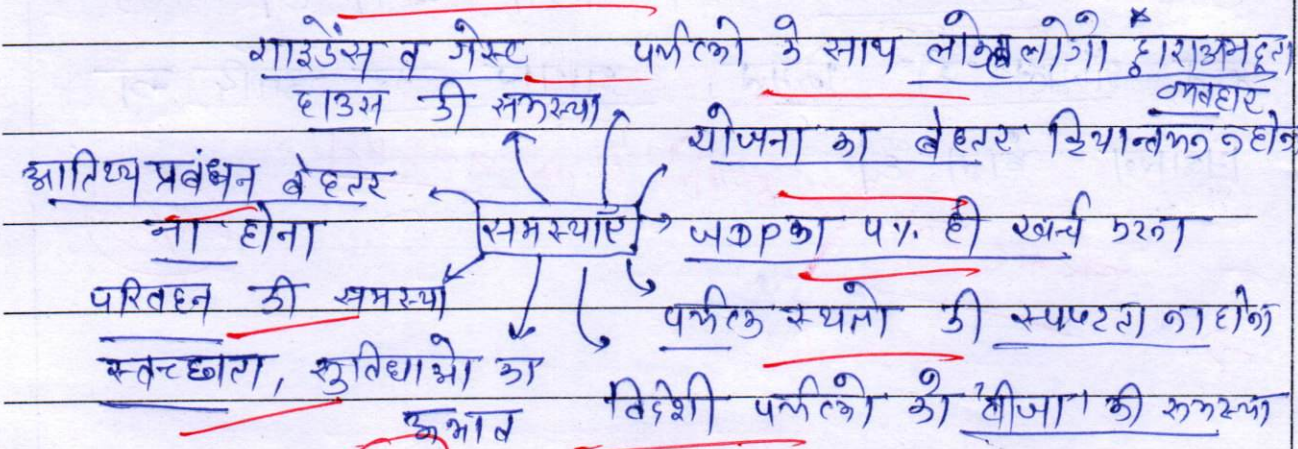 गाइडेंस व गेस्ट हाउस की समस्या
पर्यटकों के साथ लोगों द्वारा अभद्रता व्यवहार
योजना का बेहतर क्रियान्वयन न होना
आतिथ्य प्रबंधन बेहतर ना होना
समस्याएँ
GDP का 4% ही खर्च करना
परिवहन की समस्या
पर्यटक स्थलों की स्पष्टता ना होना
स्वच्छता, सुविधाओं का अभाव
विदेशी पर्यटकों को 'वीजा' की समस्या